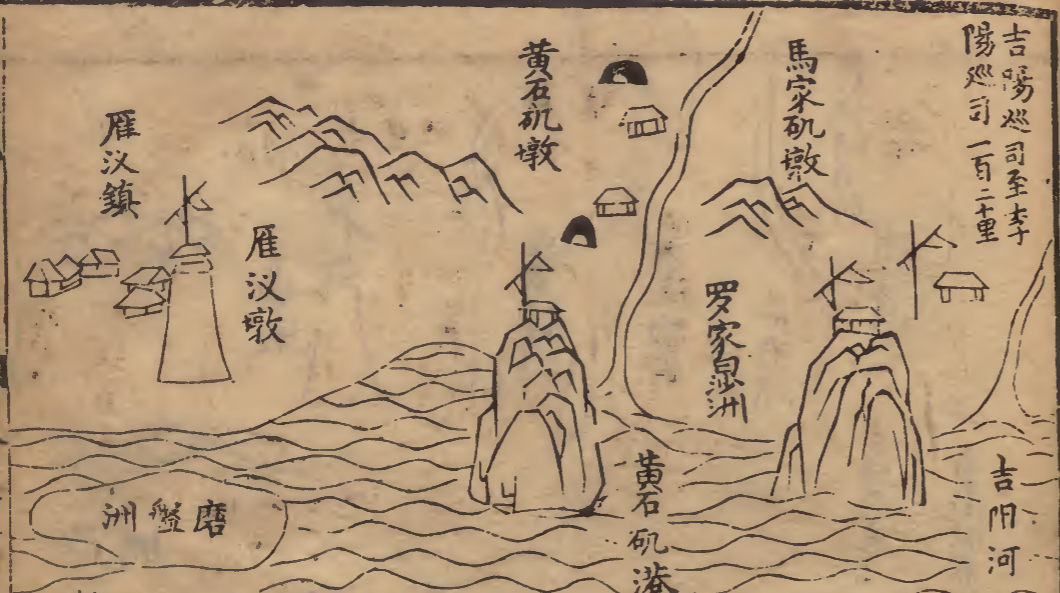 吉陽巡司至李
陽巡司一百二十里
馬家矶墩
黄石矶墩
雁汊墩
雁汊鎮
罗家
洲
吉阳河
黄石矶港
磨盤洲